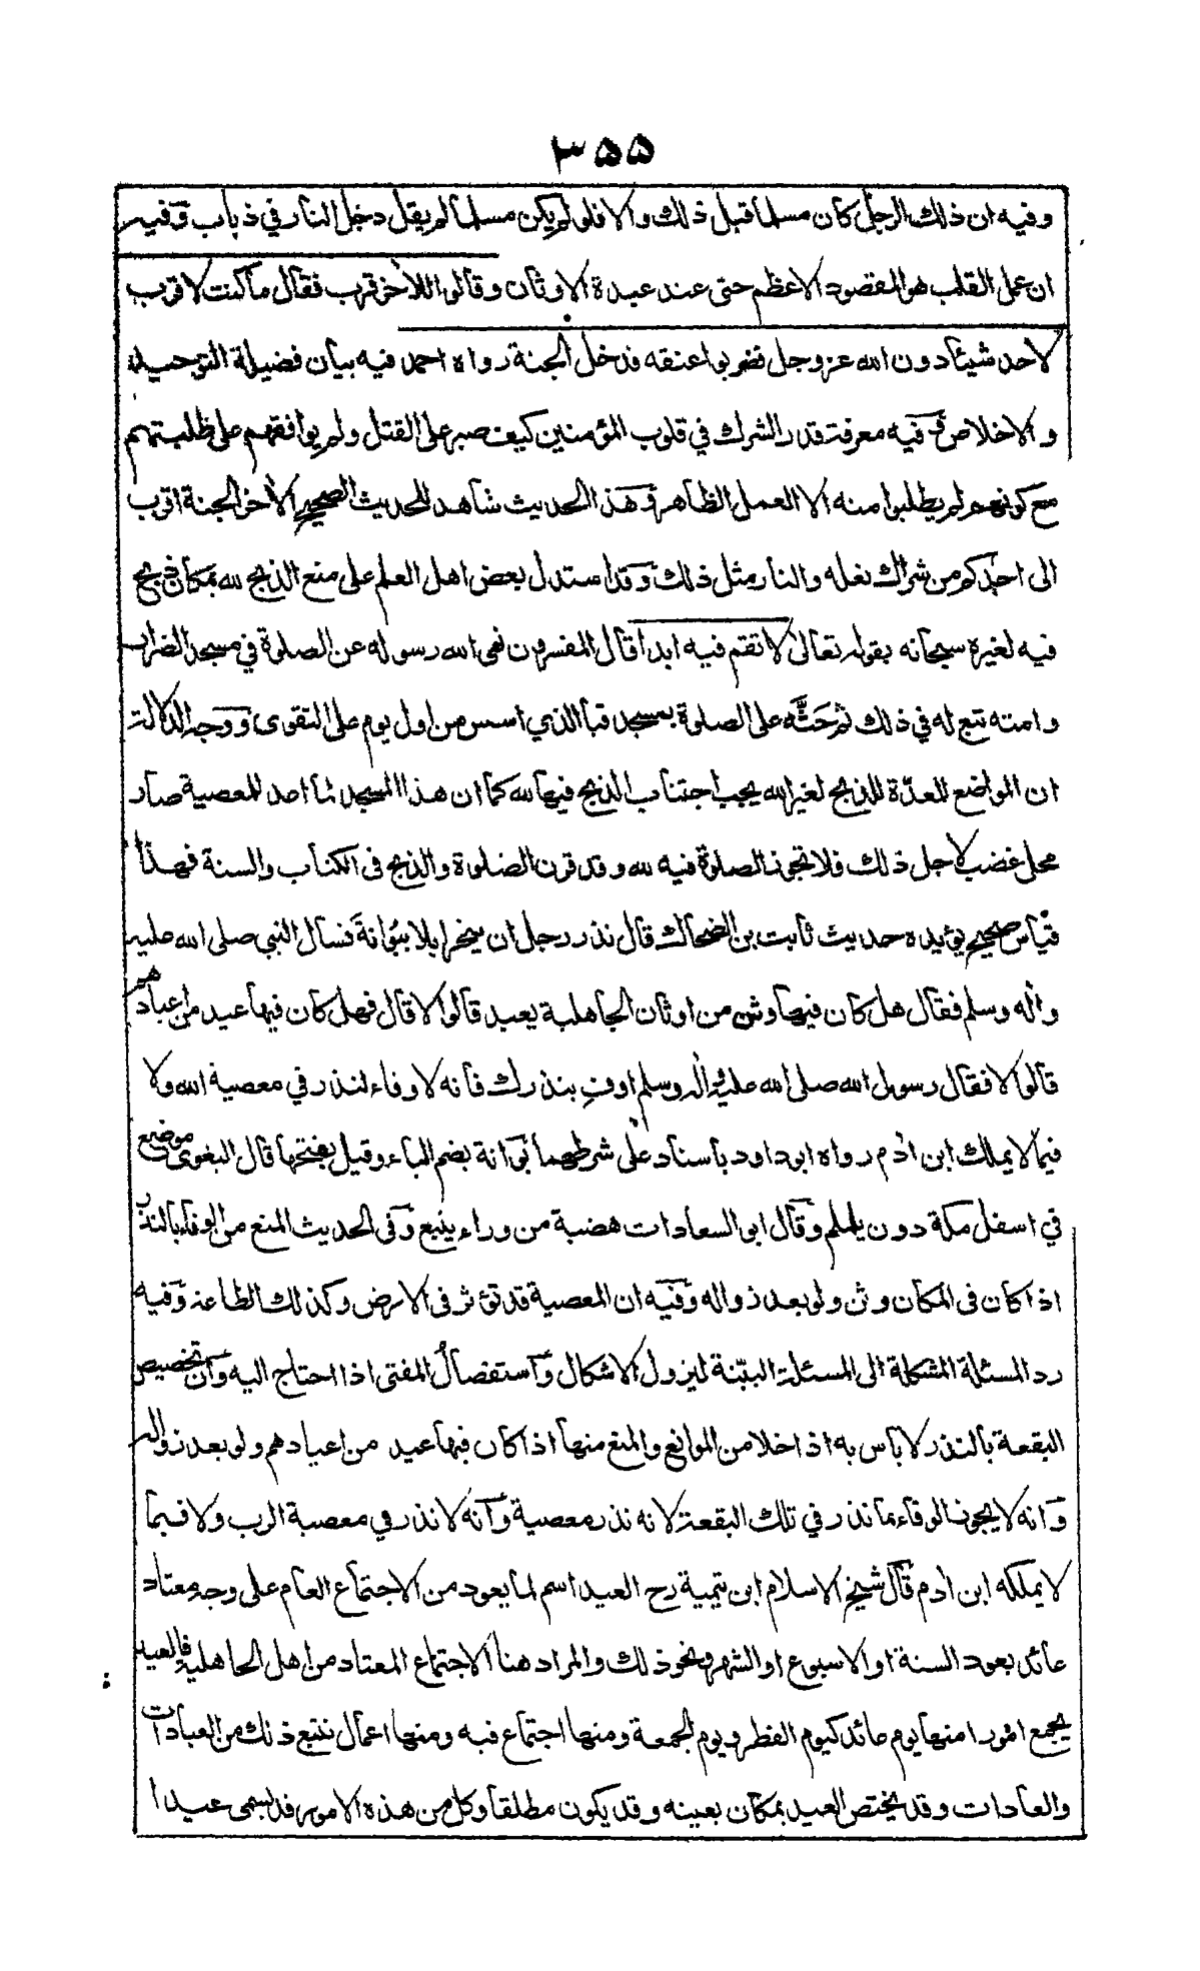 ۳۵۵
وفيه ان ذلك الرجل كان مسلما قبل ذلك والا فلو لم يكن مسلما لم يقل دخل النار في ذباب وفيه
ان عمل القلب هو المقصود الاعظم حتى عند عبدة الاوثان وقالوا للاخر قرب فقال ما كنت لاقرب
لاحد شيئا دون الله عز وجل فضربوا عنقه فدخل الجنة رواه احمد فيه بيان فضيلة التوحيد
والاخلاص وفيه معرفة قدر الشرك في قلوب المؤمنين كيف صبر على القتل ولم يوافقهم على طلبتهم
مع كونهم لم يطلبوا منه الا العمل الظاهر وهذا الحديث شاهد للحديث الصحيح الاخر الجنة اقرب
الى احدكم من شراك نعله والنار مثل ذلك وقد استدل بعض اهل العلم على منع الذبح لله بمكان ذبح
فيه لغيره سبحانه بقوله تعالى لا تقم فيه ابدا قال المفسرون نهى الله رسوله عن الصلوة في مسجد الضرار
وامته تبع له في ذلك ثم حَثَّه على الصلوة بمسجد قبا الذي اسس من اول يوم على التقوى ووجه الدلالة
ان المواضع المعدّة للذبح لغير الله يجب اجتناب الذبح فيها لله كما ان هذا المسجد لما اعد للمعصية صار
محل غضب لاجل ذلك فلا تجوز الصلوة فيه لله وقد قرن الصلوة والذبح فى الكتاب والسنة فهذا
قياس صحيح يؤيده حديث ثابت بن الضحاك قال نذر رجل ان ينحر ابلا ببُوانةَ فسأل النبي صلى الله عليه
وآله وسلم فقال هل كان فيها وثن من اوثان الجاهلية يعبد قالوا لا قال فهل كان فيها عيد من اعيادهم
قالوا لا فقال رسول الله صلى الله عليه وآله وسلم اوفِ بنذرك فانه لا وفاء لنذر في معصية الله ولا
فيما لا يملك ابن آدم رواه ابو داود باسناد على شرطهما بوانة بضم الباء وقيل بفتحها قال البغوى موضع
في اسفل مكة دون يلملم وقال ابو السعادات هضبة من وراء ينبع وفى الحديث المنع من الوفاء بالنذر
اذا كان فى المكان وثن ولو بعد زواله وفيه ان المعصية قد تؤثر فى الارض وكذلك الطاعة وفيه
رد المسئلة المشكلة الى المسئلة البيّنة ليزول الاشكال واستفصال المفتى اذا احتاج اليه وان تخصيص
البقعة بالنذر لا باس به اذ اخلا من الموانع والمنع منها اذا كان فيها عيد من اعيادهم ولو بعد زواله
وانه لا يجوز الوفاء بما نذر في تلك البقعة لانه نذر معصية وانه لا نذر في معصية الرب ولا فيما
لا يملكه ابن آدم قال شيخ الاسلام ابن تيمية رح العيد اسم لما يعود من الاجتماع العام على وجه معتاد
عائد بعود السنة او الاسبوع او الشهر ونحو ذلك والمراد هنا الاجتماع المعتاد من اهل الجاهلية فالعيد
يجمع امورا منها يوم عائد كيوم الفطر ويوم الجمعة ومنها اجتماع فيه ومنها اعمال تتبع ذلك من العبادات
والعادات وقد يختص العيد بمكان بعينه وقد يكون مطلقا وكل من هذه الامور قد يسمى عيدا